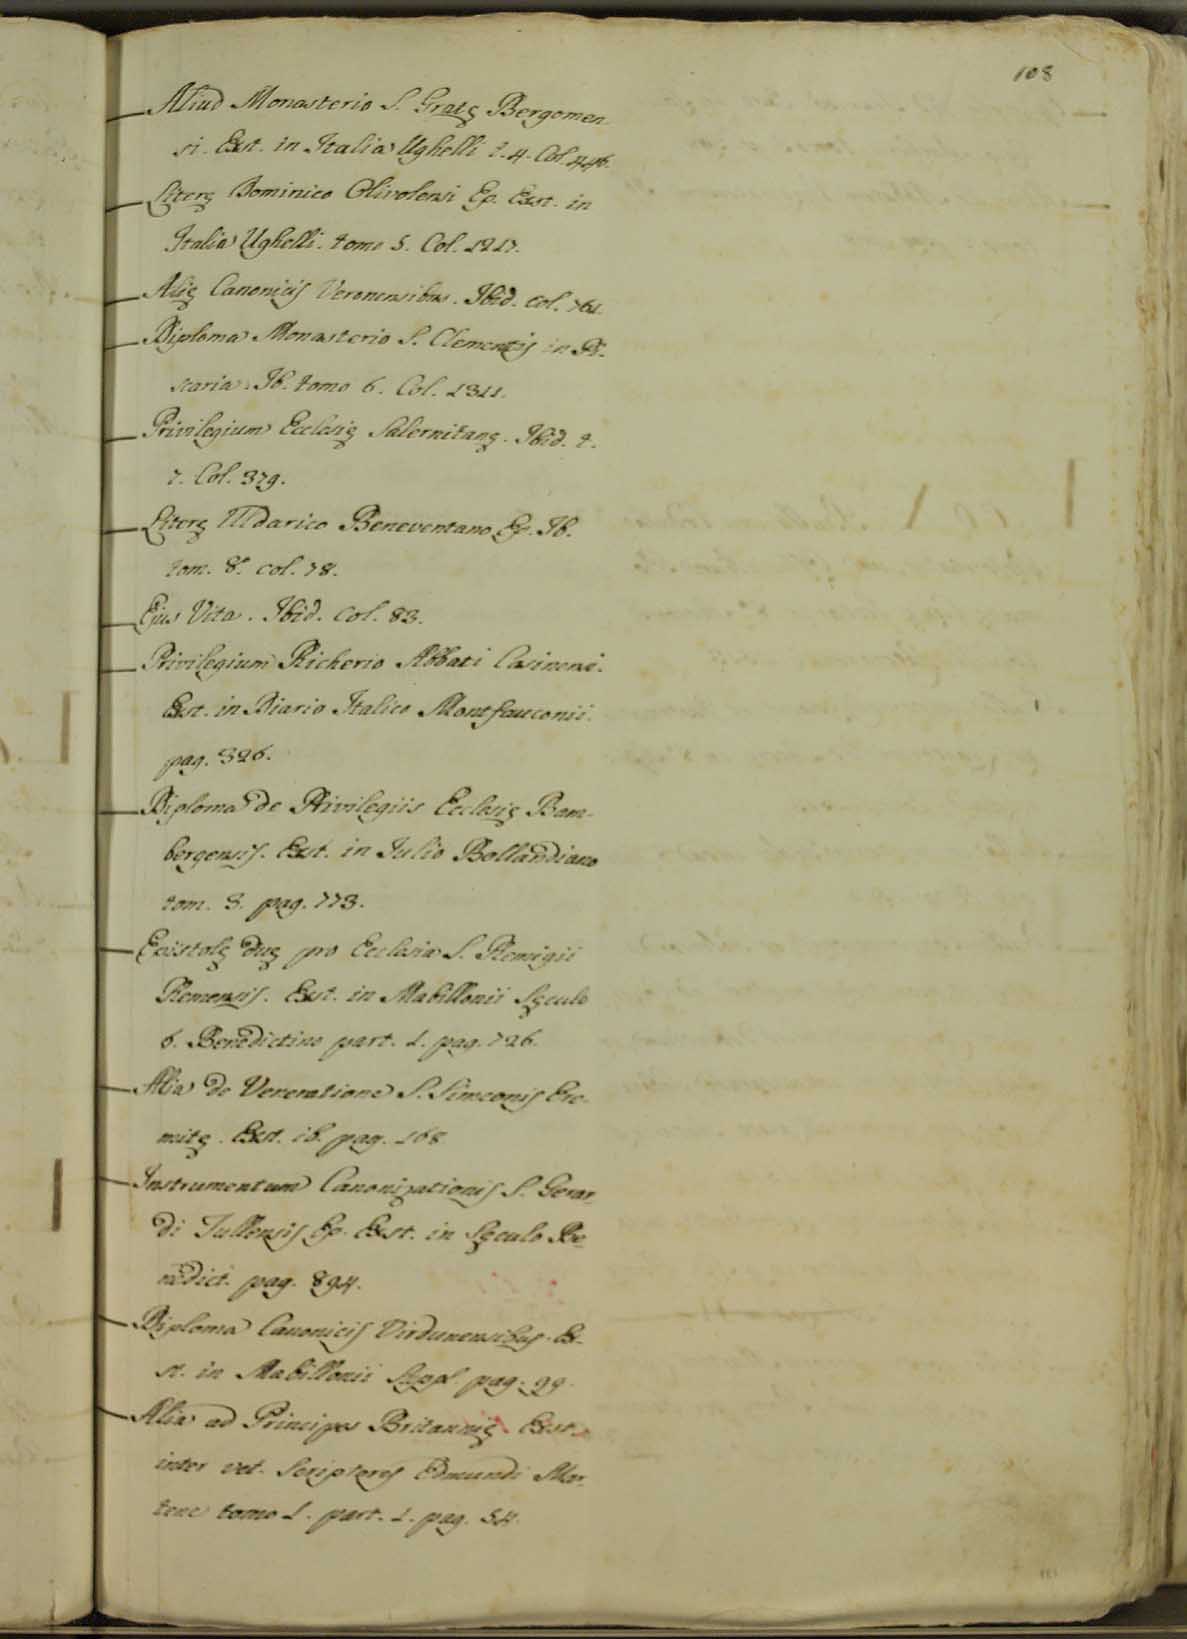 108
Aliud Monasterio S. Gratę Bergomen
si. Exst. in Italia Ughelli t. 4. Col. 446.
Literę Dominico Olivolensi Ep. Exst. in
Italia Ughelli. tomo 5. Col. 1217.
Alię Canonicis Veronensibus. Ibid. col. 761.
Diploma Monasterio S. Clementis in Pi-
scaria. Ib. tomo 6. Col. 1311.
Privilegium Ecclesię Salernitanę. Ibid. t.
7. Col. 379.
Literę Uldarico Beneventano Ep. Ib.
tom. 8. col. 78.
Ejus Vita. Ibid. Col. 83.
Privilegium Richerio Abbati Casinensi.
Exst. in Diario Italico Montfauconii.
pag. 326.
Diploma de Privilegiis Ecclesię Bam-
bergensis. Exst. in Julio Bollandiano
tom. 3. pag. 773.
Epistolę duę pro Ecclesia S. Remigii
Remensis. Exst. in Mabillonii Sęculo
6. Benedictino part. 1. pag. 726.
Alia de Veneratione S. Simeonis Ere-
mitę. Exst. ib. pag. 168
Instrumentum Canonizationis S. Gerar
di Tullensis Ep. Exst. in Sęculo Be
nedict. pag. 894.
Diploma Canonicis Virdunensibus. Ex-
st. in Mabillonii Suppl. pag. 99.
Alia ad Principes Britannię Exst.
inter vet. Scriptores Edmundi Mar
tene tomo 1. part. 1. pag. 54.